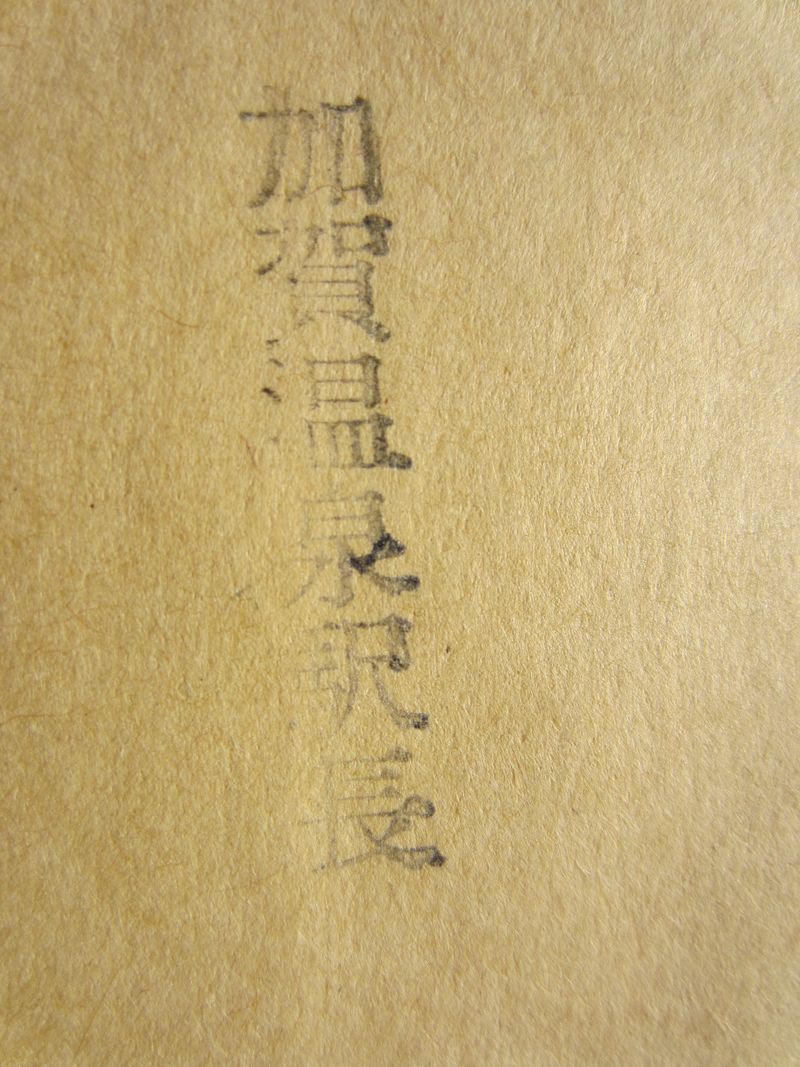 加賀温泉駅長